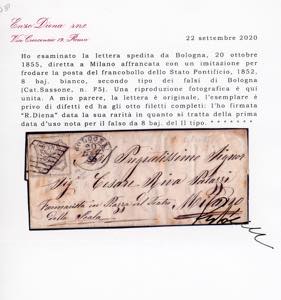 Enzo Diena s.n.c.
Via Crescenzio 19, Roma
22 settembre 2020
Ho esaminato la lettera spedita da Bologna, 20 ottobre
1855, diretta a Milano affrancata con un imitazione per
frodare la posta del francobollo dello Stato Pontificio, 1852,
8 baj. bianco, secondo tipo dei falsi di Bologna
(Cat.Sassone, n. F5). Una riproduzione fotografica è qui
unita. A mio parere, la lettera è originale, l'esemplare è
privo di difetti ed ha gli otto filetti completi: l'ho firmata
"R.Diena" data la sua rarità in quanto si tratta della prima
data d'uso nota per il falso da 8 baj. del II tipo. * * * * * *
BOLOGNA
Pregiatissimo Signor
Sig. Cesare Riva Palazzi
Farmacista in Piazza del Teatro Milano
Della Scala